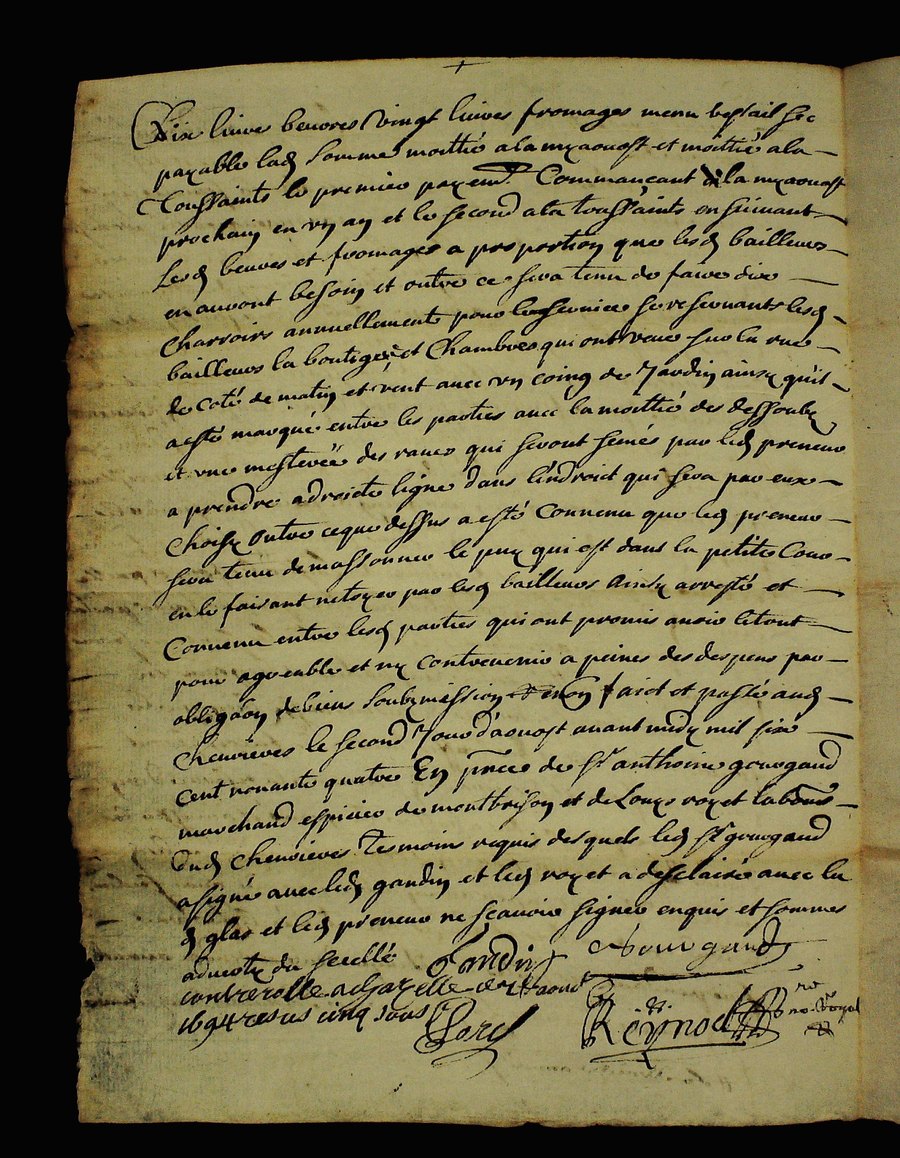 Dix livre beuvres vingt livres fromages menu bestail sec
payable lad somme moittié a la myaoust et moittié a la
Toussaints le premier payemt Commancant a la myaoust
prochain en un an et le second a la toussaints ensuivant
Lesd beuves et fromages a proportion que lesd bailleurs
en auront besoin et outre ce sera tenu de faire dix
charroirs annuellement pour le service se reservants lesd
bailleurs la boutique et Chambres qui ont veue sur la rue
de coté de matin et vent avec un coing de Jardin ainsy qu'il
a esté marqué entre les parties avec la moittié des dessoubz
et une mesterée des raves qui seront semés par led preneur
a prendre a droicte ligne dans l'endroit qui sera par eux
choisy outre ce que dessus a esté Convenu que led preneur
sera tenu de massonner le puy qui est dans la petite Cour
en le faisant netoyer par lesd bailleurs Ainsy arresté et
Convenu entre lesd parties qui ont promis avoir le tout
pour agreable et ny contrevenir a peines des despens par
obligaon de biens soubzmission & renon faict et passé aud
Chevrieres le second Jour d'aoust avant midy mil six
cent nonante quatre En pnce de sr anthoine gourgaud
marchand espicier de montbrison et de Louys royet labour
dud Chevrieres Tesmoins requis desquels led sr gourgaud
a signé avec led gaudin et led royet a desclairé avec la
d glas et led preneur ne scavoir signer enquis et sommes
adverty du scellé
Gaudin Gourgaud
controllé a chazelle le aoust
1694 resus cinq sous
Reymod nre Royal